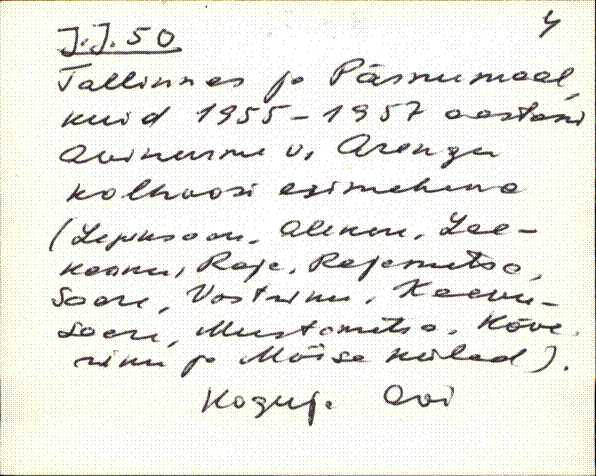 4
J.J. 50
Tallinnas ja Pärnumaal,
kuid 1955-1957 aastani
Avinurme v. Arengu
kolhoosi esimehena
(Lepiksaare, Alekere, Lae-
kannu, Raja, Rajametsa,
Saare, Vostrinu, Kaevu-
saare, Mustametsa, Kõve-
riku ja Mõisa külad).
Koguja Avi